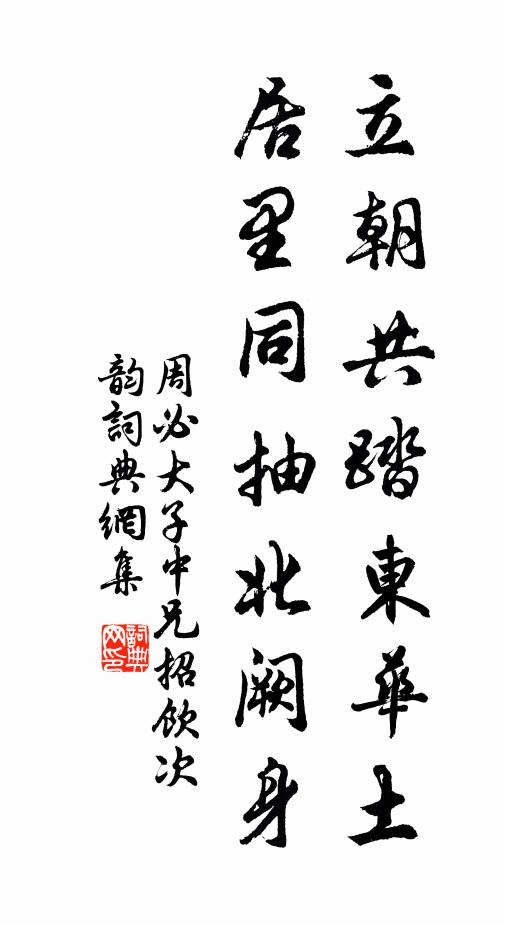 立朝共踏東華土
居里同抽北闕身
周必大子中兄招飲次
韵詞典網集
詞典
网印